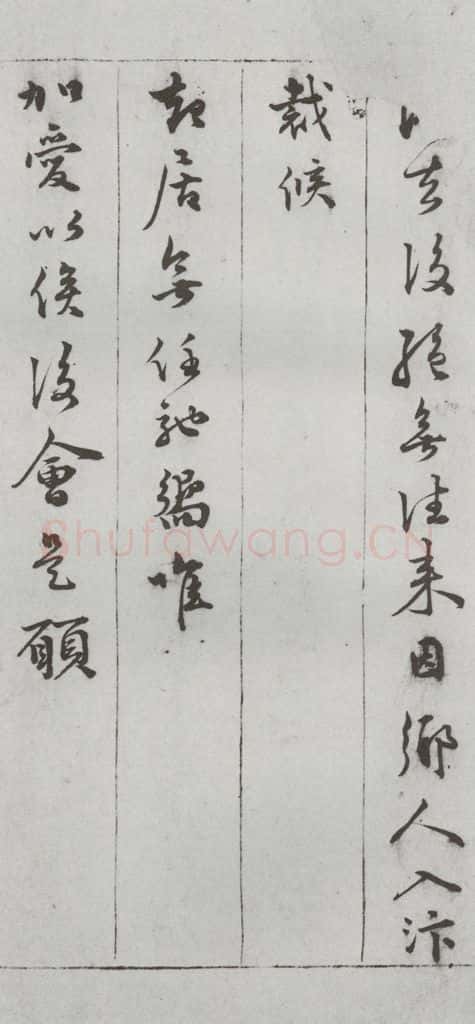 去後絶無往來因鄉人入汴
裁候
起居無任馳唯
加愛以俟後會是願
Shufawang.CN